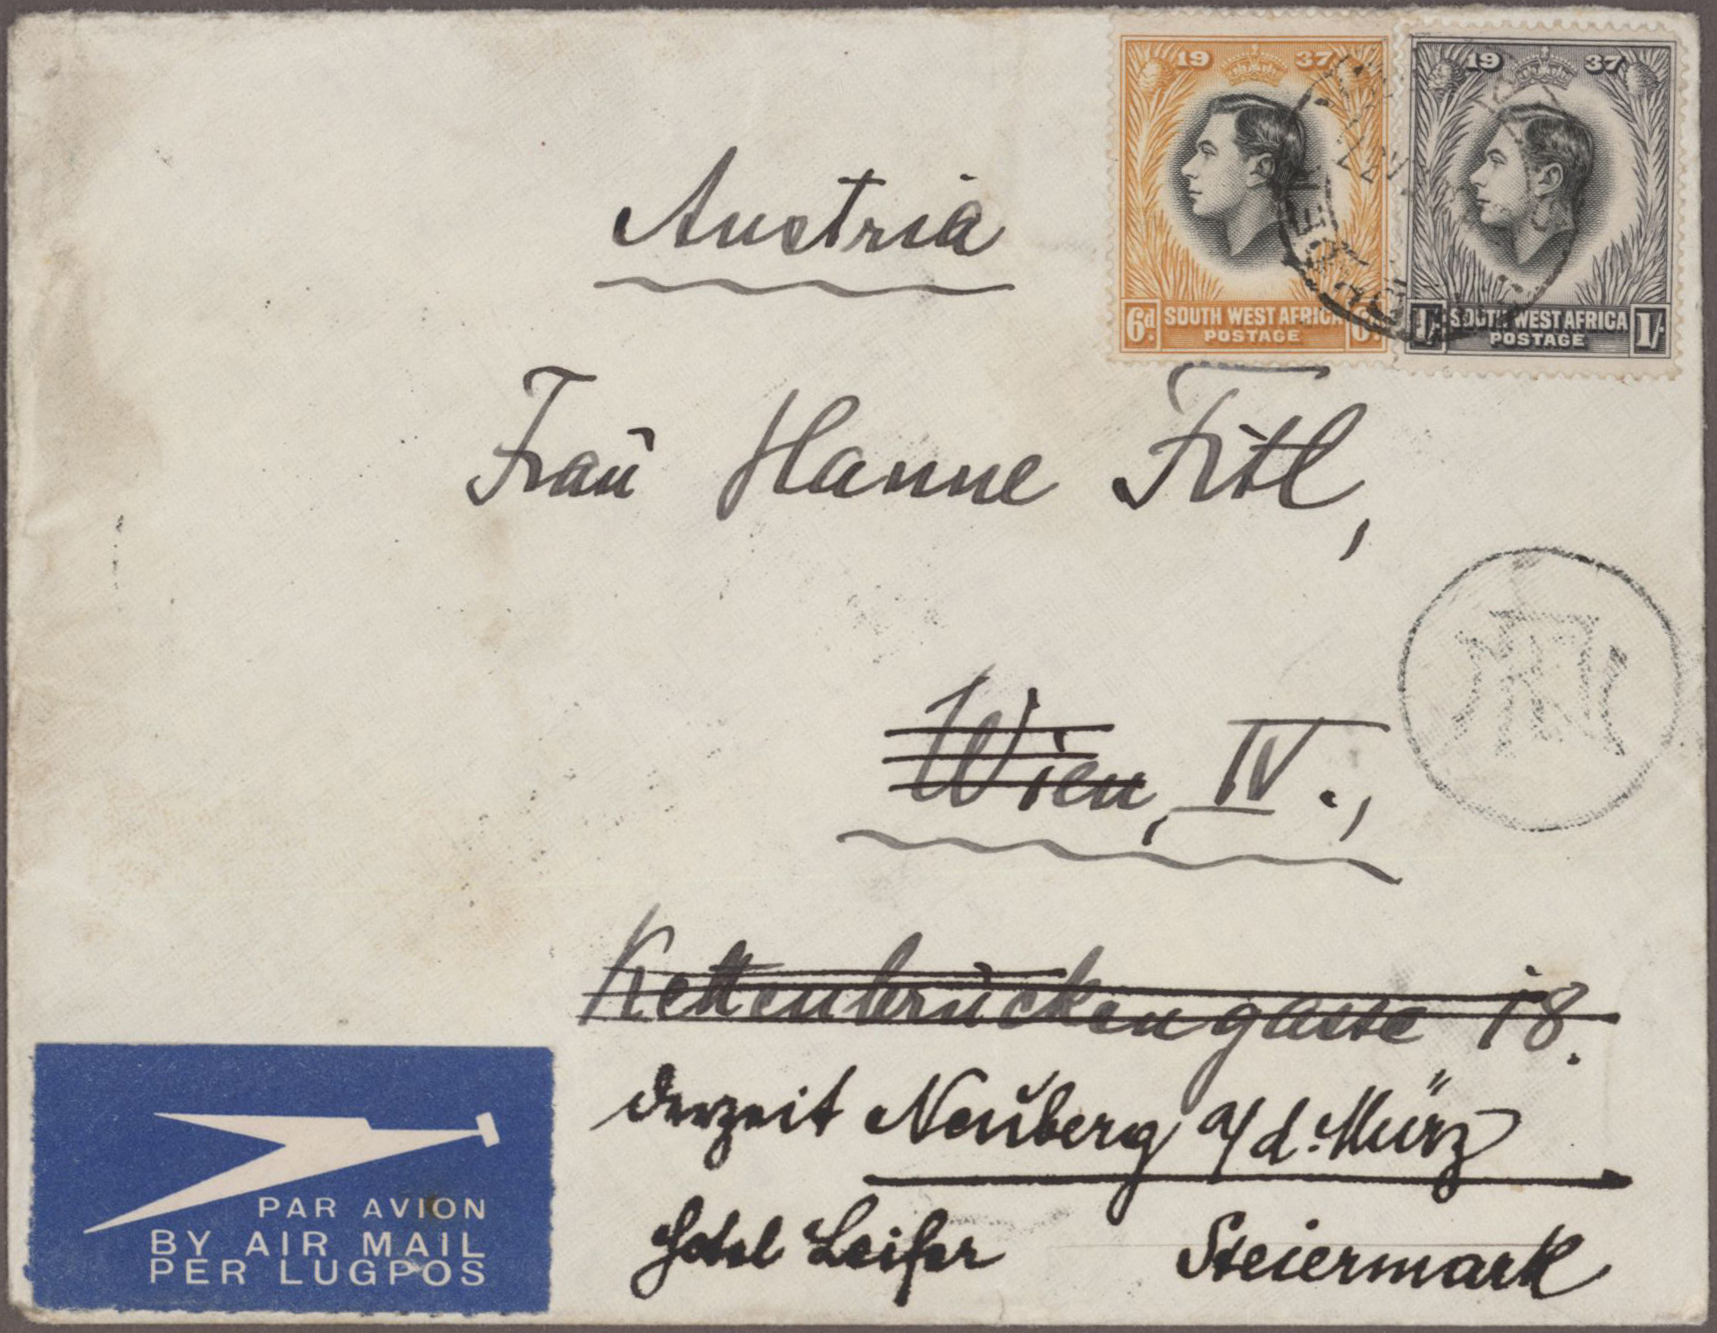 19 37
6d. SOUTH WEST AFRICA 6d.
POSTAGE
19 37
1/- SOUTH WEST AFRICA 1/-
POSTAGE
Austria
Frau Hanne Fitl,
Wien, IV.,
Kettenbrückengasse 18.
derzeit Neuberg a/d. Mürz
Hotel Leifer Steiermark
PAR AVION
BY AIR MAIL
PER LUGPOS